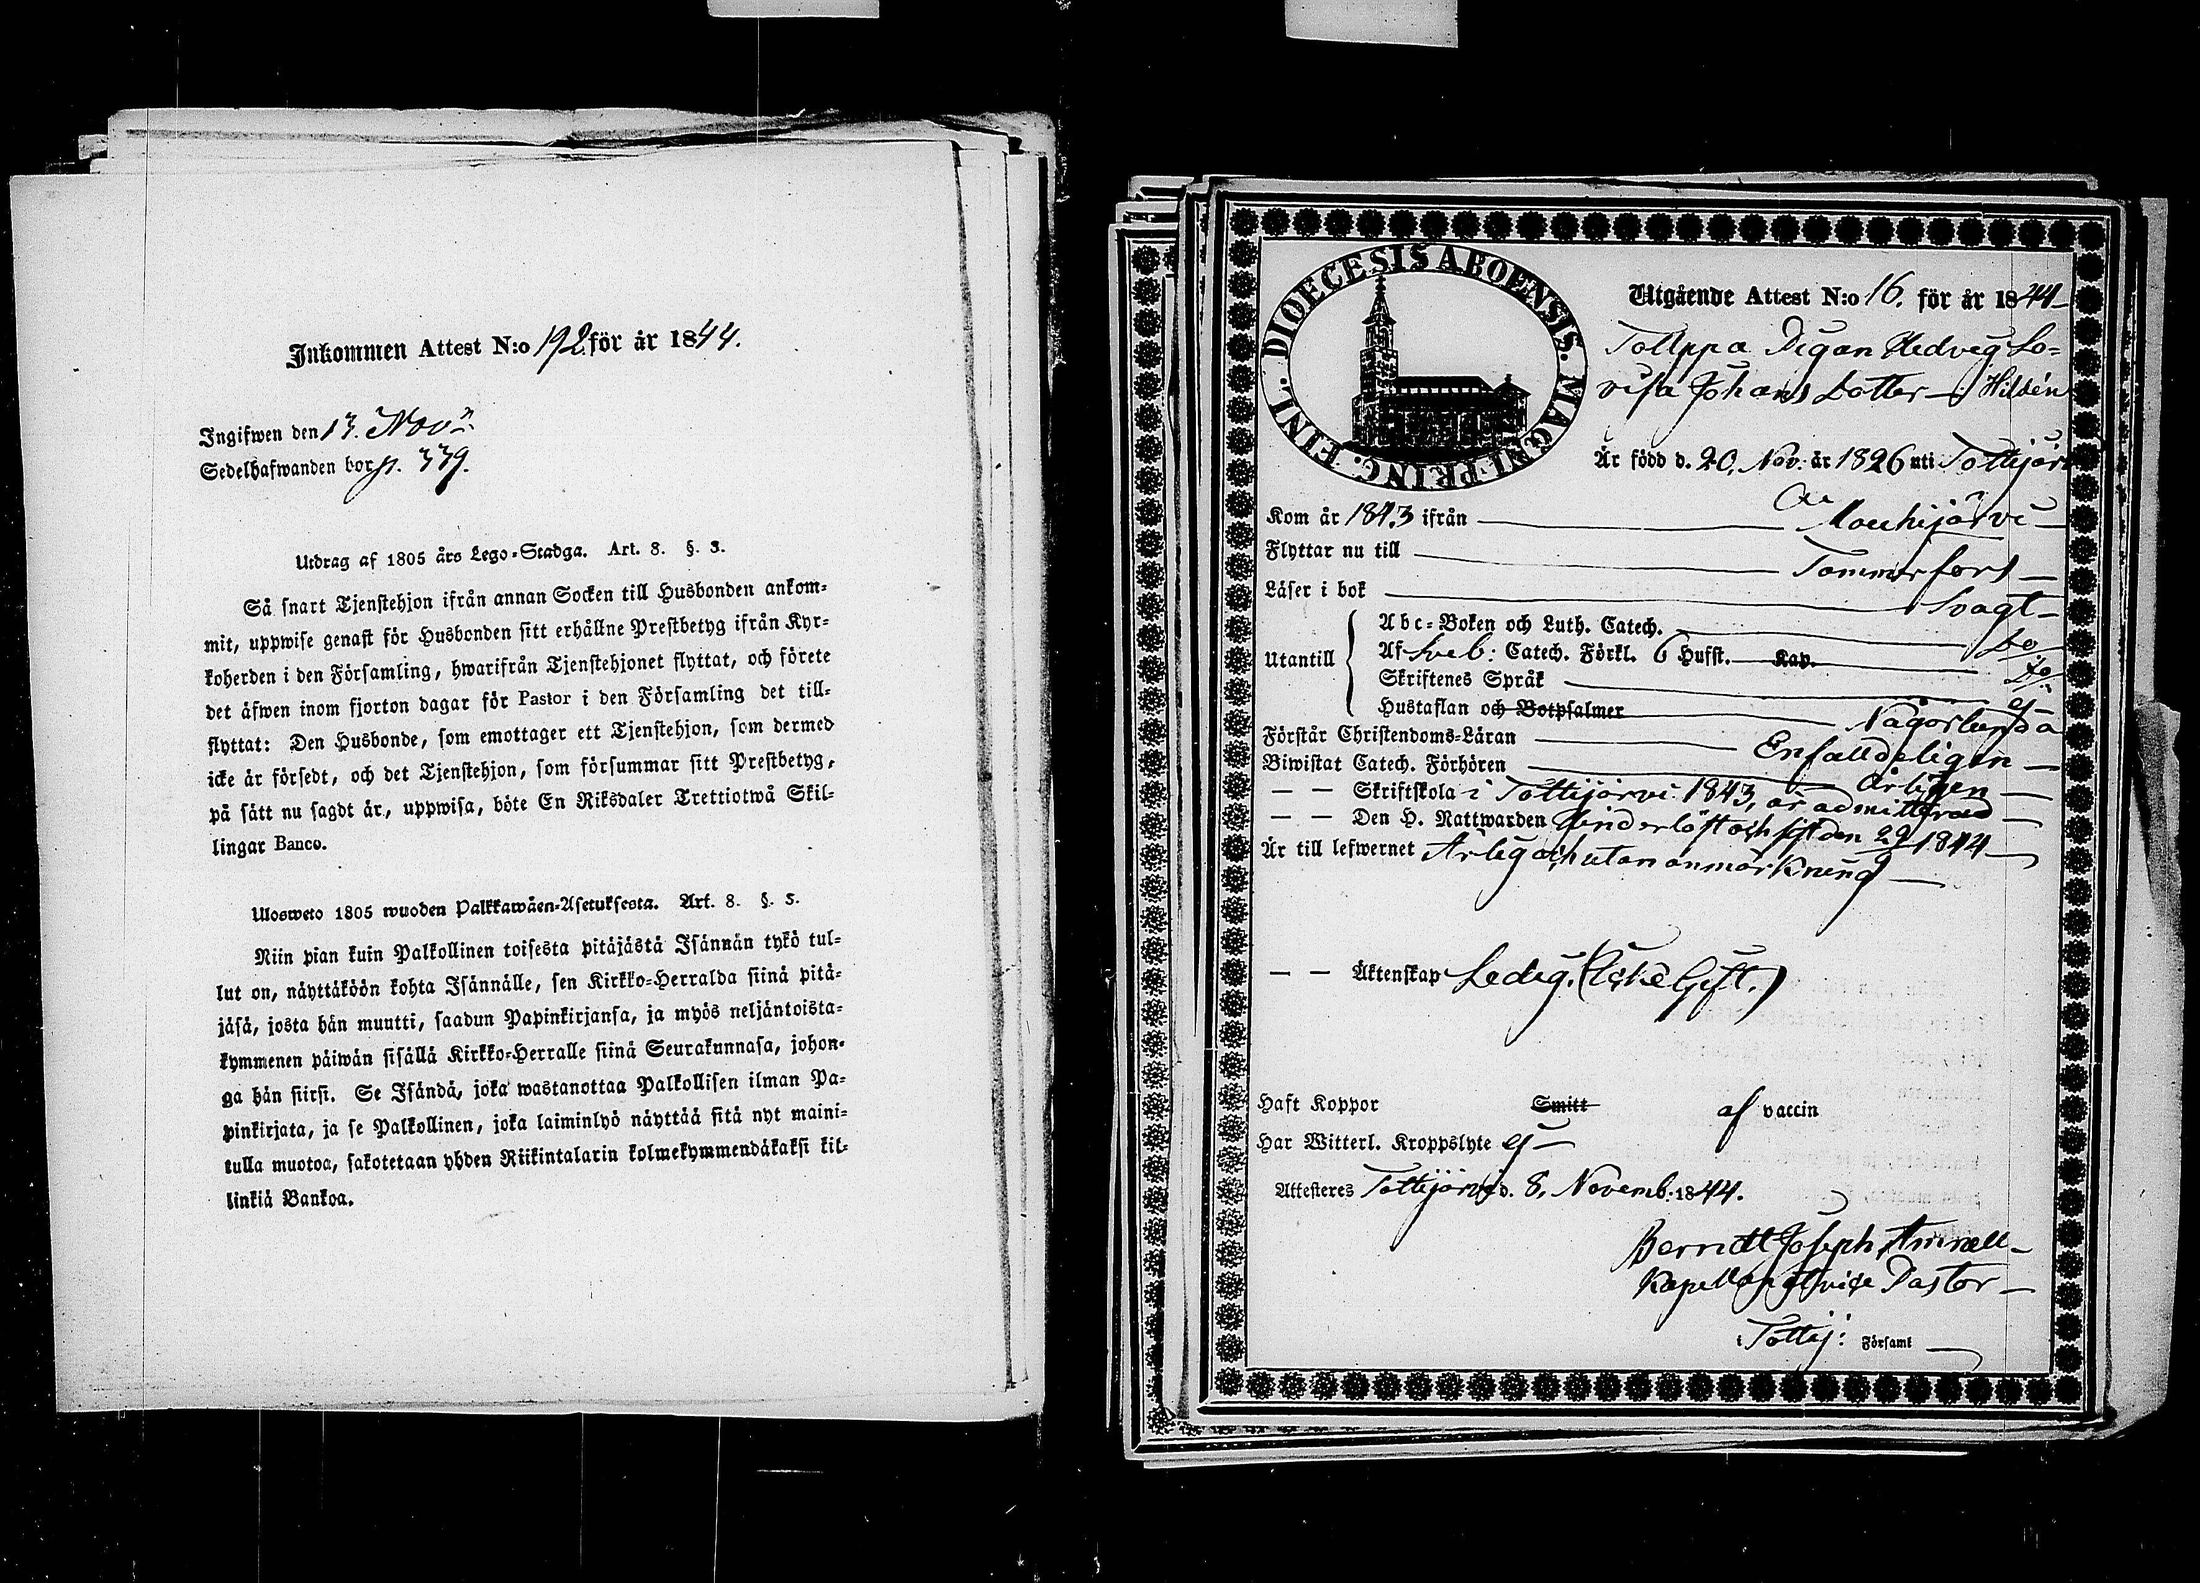 Inkommen Attest N:o 192 för år 1844.
Ingifwen den 13. Nov:
Sedelhafwanden bor p. 339.
Utdrag af 1805 års Lego-Stadga. Art. 8. §. 3.
Så snart Tjenstehjon ifrån annan Socken till Husbonden ankom-
mit, uppwise genast för Husbonden sitt erhållne Prestbetyg ifrån Kyr-
koherden i den Församling, hwarifrån Tjenstehjonet flyttat, och förete
det äfwen inom fjorton dagar för Pastor i den Församling det till-
flyttat: Den Husbonde, som emottager ett Tjenstehjon, som dermed
icke är försedt, och det Tjenstehjon, som försummar sitt Prestbetyg,
på sätt nu sagdt är, uppwisa, böte En Riksdaler Trettiotwå Skil-
lingar Banco.
Ulosweto 1805 wuoden Palkkawäen-Asetuksesta. Art. 8. §. 3.
Niin pian kuin Palkollinen toisesta pitäjästä Isännän tykö tul-
lut on, näyttäköön kohta Isännälle, sen Kirkko-Herralda siinä pitä-
jäsä, josta hän muutti, saadun Papinkirjansa, ja myös neljäntoista-
kymmenen päiwän sisällä Kirkko-Herralle siinä Seurakunnasa, johon-
ga hän siirsi. Se Isändä, joka wastanottaa Palkollisen ilman Pa-
pinkirjata, ja se Palkollinen, joka laiminlyö näyttää sitä nyt maini-
tulla muotoa, sakotetaan yhden Riikintalarin kolmekymmendäkaksi kil-
linkiä Bankoa.
DIOECESIS ABOENSIS. MAGNI PRINC. FINL.
Utgående Attest N:o 16. för år 1844
Pigan Hedvig Lo-
visa Johans Dotter Hildén
Är född d. 20. Nov. år 1826 uti Tottijärvi
Kom år 1843 ifrån Mouhijärvi
Flyttar nu till Tammerfors
Läser i bok Svagt
Utantill
Abc-Boken och Luth. Catech. Do
Af Sveb: Catech. Förkl. 6 Hufst. Kap. Do
Skriftenes Språk ej
Hustaflan och Botpsalmer Någorlunda
Förstår Christendoms-Läran Enfalldeligen
Biwistat Catech. Förhören Årligen
— — Skriftskola i Tottijärvi 1843, är admitterad
— — Den H. Nattwarden och sist den 1844
Är till lefwernet Ärlig och utan anmärkning
— — Äktenskap Ledig. (Icke Gift.)
Haft Koppor Smitt af vaccin
Har Witterl. Kroppslyte ej
Attesteres Tottijärvi d. 8. Novemb: 1844.
Berndt Joseph
Kapellan et vice Pastor
i Tottij: Församl